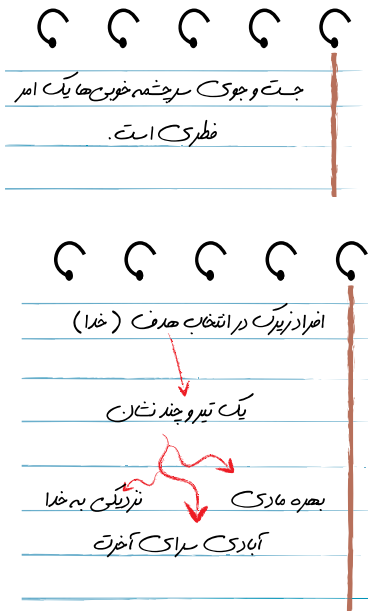 جست و جوی سرچشمه خوبی‌ها یک امر
فطری است.
افراد زیرک در انتخاب هدف (خدا)
یک تیر و چند نشان
بهره مادی
نزدیکی به خدا
آبادی سرای آخرت